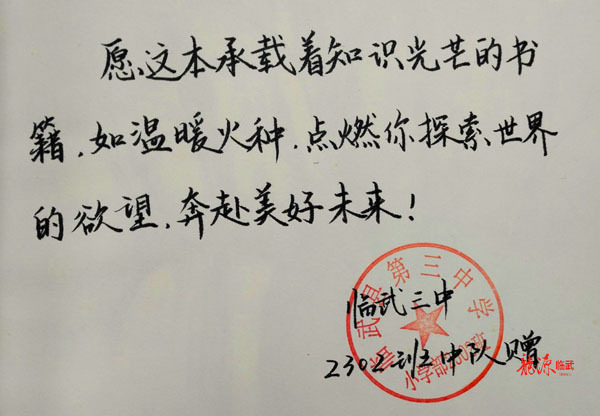 愿这本承载着知识光芒的书
籍,如温暖火种,点燃你探索世界
的欲望,奔赴美好未来!
临武三中
2302班中队赠
临武县第三中学
小学部
龙源临武